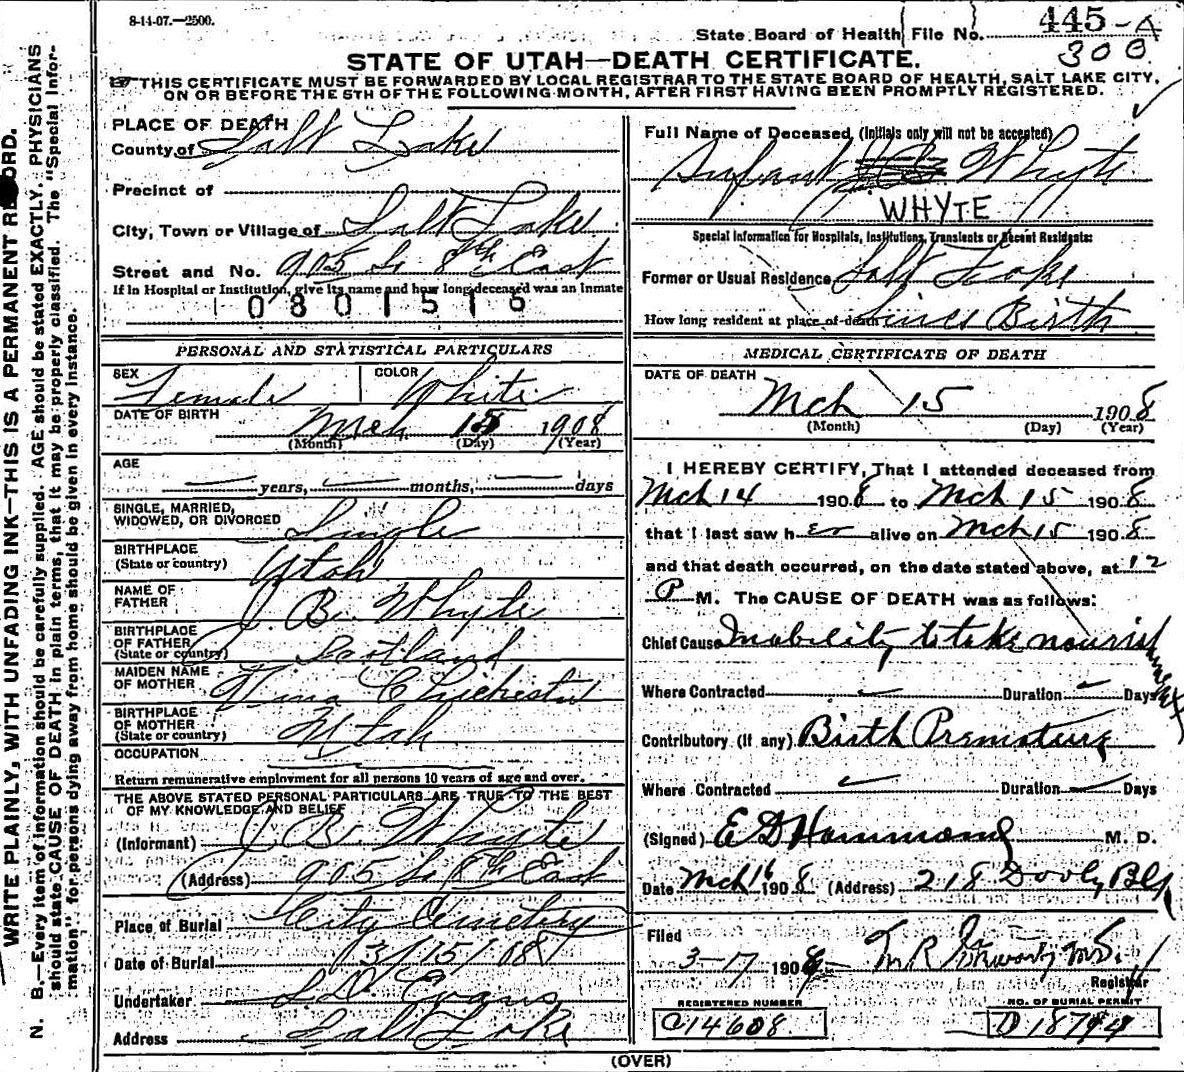 8-14-07.—2500.
State Board of Health File No. 445-A
300
STATE OF UTAH—DEATH CERTIFICATE.
THIS CERTIFICATE MUST BE FORWARDED BY LOCAL REGISTRAR TO THE STATE BOARD OF HEALTH, SALT LAKE CITY,
ON OR BEFORE THE 5TH OF THE FOLLOWING MONTH, AFTER FIRST HAVING BEEN PROMPTLY REGISTERED.
WRITE PLAINLY, WITH UNFADING INK—THIS IS A PERMANENT RECORD.
N. B.—Every item of information should be carefully supplied. AGE should be stated EXACTLY. PHYSICIANS
should state CAUSE OF DEATH in plain terms, that it may be properly classified. The "Special Infor-
mation" for persons dying away from home should be given in every instance.
PLACE OF DEATH
County of Salt Lake
Precinct of
City, Town or Village of Salt Lake
Street and No. 905 So 8th East
If in Hospital or Institution, give its name and how long deceased was an inmate
0801516
PERSONAL AND STATISTICAL PARTICULARS
SEX Female COLOR White
DATE OF BIRTH Mch 15 1908
(Month) (Day) (Year)
AGE
years, months, days
SINGLE, MARRIED,
WIDOWED, OR DIVORCED Single
BIRTHPLACE
(State or country) Utah
NAME OF
FATHER J. B. Whyte
BIRTHPLACE
OF FATHER
(State or country) Scotland
MAIDEN NAME
OF MOTHER Nina Chichester
BIRTHPLACE
OF MOTHER
(State or country) Utah
OCCUPATION
Return remunerative employment for all persons 10 years of age and over.
THE ABOVE STATED PERSONAL PARTICULARS ARE TRUE TO THE BEST
OF MY KNOWLEDGE AND BELIEF
(Informant) J. B. Whyte
(Address) 905 So 8th East
Place of Burial City Cemetery
Date of Burial 3/15/08
Undertaker S D. Evans
Address Salt Lake
Full Name of Deceased (Initials only will not be accepted)
Infant Whyte
WHYTE
Special Information for Hospitals, Institutions, Transients or Recent Residents:
Former or Usual Residence Salt Lake
How long resident at place of death Since Birth
MEDICAL CERTIFICATE OF DEATH
DATE OF DEATH
Mch 15 1908
(Month) (Day) (Year)
I HEREBY CERTIFY, That I attended deceased from
Mch 14 1908 to Mch 15 1908
that I last saw her alive on Mch 15 1908
and that death occurred, on the date stated above, at 12
P M. The CAUSE OF DEATH was as follows:
Chief Cause Inability to take nourishment
Where Contracted Duration Days
Contributory (if any) Birth Premature
Where Contracted Duration Days
(Signed) E D Hammond M. D.
Date Mch 16 1908 (Address) 218 Dooly Blk
Filed
3-17 1908 M.D.
Registrar
REGISTERED NUMBER
C14608
NO. OF BURIAL PERMIT
(OVER)